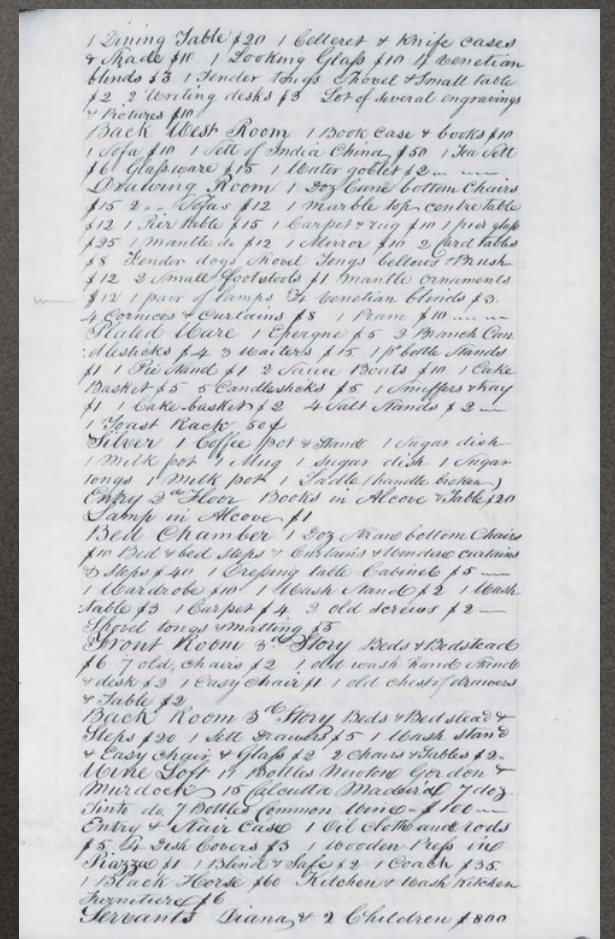 1 Dining Table $20 1 Celleret & Knife cases
& Shade $10 1 Looking Glass $10 4 Venetian
blinds $3 1 Fender tongs Shovel & Small table
$2 2 Writing desks $3 Lot of several engravings
& Pictures $10
Back West Room 1 Book Case & books $10
1 Sofa $10 1 Sett of India China $50 1 Tea Sett
$6 Glassware $15 1 Water goblet $2
Drawing Room 1 Doz Cane bottom Chairs
$15 2 " Sofas $12 1 marble top centre table
$12 1 Pier table $15 1 Carpet & rug $10 1 pier glass
$25 1 mantle do $12 1 Mirror $10 2 Card tables
$8 Fender dogs Shovel Tongs bellows & Brush
$12 2 Small footstools $1 mantle ornaments
$12 1 pair of lamps 4 Venetian blinds $3.
4 Cornices & Curtains $8 1 Piano $10
Plated Ware 1 Epergne $5 2 Branch Can
:dlesticks $4 3 Waiters $15 1 pr bottle Stands
$1 1 Pie Stand $1 2 Sauce Boats $10 1 Cake
Basket $5 5 Candlesticks $5 1 Snuffers & tray
$1 1 Cake basket $2 4 Salt Stands $2
1 Toast Rack 50¢
Silver 1 Coffee pot & Stand 1 Sugar dish
1 Milk pot 1 Mug 1 sugar dish 1 Sugar
tongs 1 Milk pot 1 Ladle (handle broken)
Entry 2nd Floor Books in Alcove & Table $20
Lamp in Alcove $1
Bed Chamber 1 Doz Straw bottom Chairs
$10 Bed & bed steps & Curtains & Window curtains
& Steps $40 1 Dressing table Cabinet $5
1 Wardrobe $10 1 Wash Stand $2 1 Wash
:table $3 1 Carpet $4 2 old screws $2
Shovel tongs & matting $5
Front Room 3rd Story Beds & Bedstead
$6 7 old chairs $2 1 old wash hand Stand
& desk $2 1 Easy Chair $1 1 old chest of drawers
& Table $2
Back Room 3rd Story Beds & Bedstead &
Steps $20 1 Sett Drawers $5 1 Wash stand
& Easy chair & Glass $2 2 Chairs & Tables $2
Wine Loft 17 Bottles Newton Gordon &
Murdock 15 Calcutta Madeira 7 doz
Tinto do 7 Bottles Common Wine $100
Entry & Stair Case 1 Oil cloth and rods
$5 4 Dish Covers $3 1 Wooden Press in
Piazza $1 1 Blind & Safe $2 1 Coach $35
1 Black Horse $60 Kitchen & Wash Kitchen
Furniture $6
Servants Diana & 2 Children $800